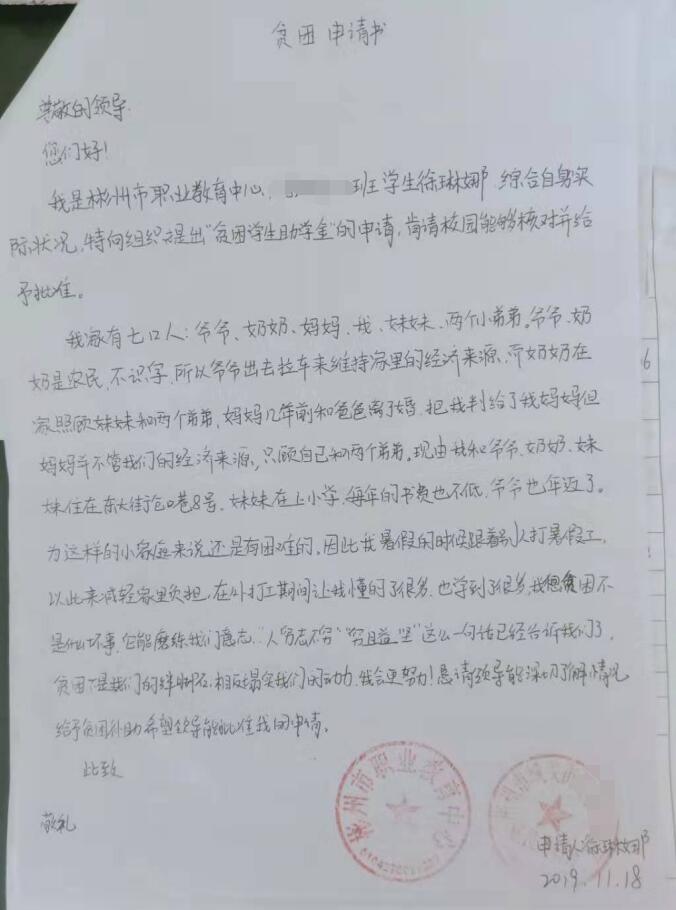 贫困申请书
尊敬的领导
您们好！
我是彬州市职业教育中心, 班学生徐琳娜, 综合自身实
际状况, 特向组织提出"贫困学生助学金"的申请, 肯请校园能够核对并给
予批准。
我家有七口人：爷爷、奶奶、妈妈、我、妹妹、两个小弟弟。爷爷、奶
奶是农民, 不识字, 所以爷爷出去拉车来维持家里的经济来源, 而奶奶在
家照顾妹妹和两个弟弟, 妈妈几年前和爸爸离了婚, 把我判给了我妈妈但
妈妈并不管我们的经济来源, 只顾自己和两个弟弟。现由我和爷爷、奶奶、妹
妹住在东大街仓口巷8号, 妹妹在上小学, 每年的书费也不低, 爷爷也年迈了。
为这样的小家庭来说还是有困难的, 因此我暑假的时候跟着别人打暑假工,
以此来减轻家里负担, 在外打工期间让我懂的了很多, 也学到了很多, 我想贫困不
是什么坏事, 它能磨练我们意志, "人穷志不穷" "穷且益坚" 这么一句话已经告诉我们了,
贫困不是我们的绊脚石, 相反是我们的动力, 我会更努力！恳请领导能深切了解情况
给予贫困补助希望领导能批准我的申请。
此致
敬礼
彬州市职业教育中心
申请人徐琳娜
2019.11.18
6